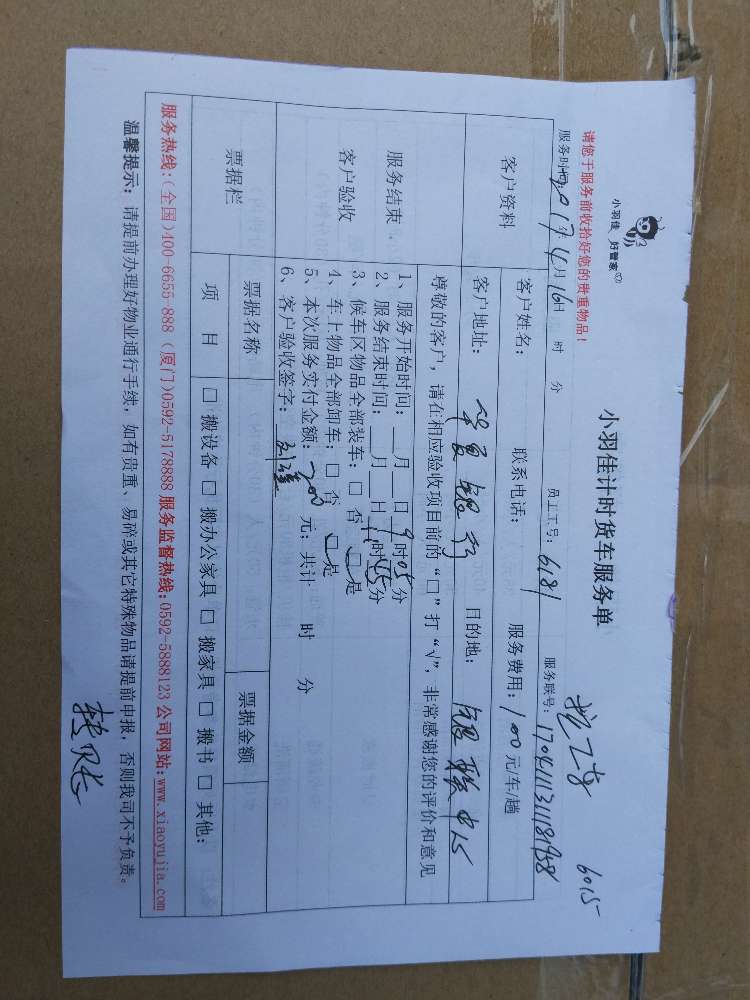 小羽佳 好管家
小羽佳计时货车服务单
6015
请您于服务前收拾好您的贵重物品！
服务时间：2017年4月16日 时 分 员工工号：6181 服务联号：
客户资料
客户姓名： 联系电话： 服务费用：100元/车/趟
客户地址： 银行 目的地： 银联中心
尊敬的客户，请在相应验收项目前的“□”打“√”，非常感谢您的评价和意见
服务结束
客户验收
1、服务开始时间：__月__日9时05分
2、服务结束时间：__月__日11时45分
3、候车区物品全部装车：□ 否 □是
4、车上物品全部卸车：□ 否 □是
5、本次服务实付金额：200元；共计 时 分
6、客户验收签字：
票据栏
票据名称 票据金额
项 目 □ 搬设备 □ 搬办公家具 □ 搬家具 □ 搬书 □ 其他：
服务热线：(全国)400-6655-888 (厦门)0592-5178888 服务监督热线：0592-5888123 公司网站：www.xiaoyujia.com
温馨提示：请提前办理好物业通行手续，如有贵重、易碎或其它特殊物品请提前申报，否则我司不予负责。
转账